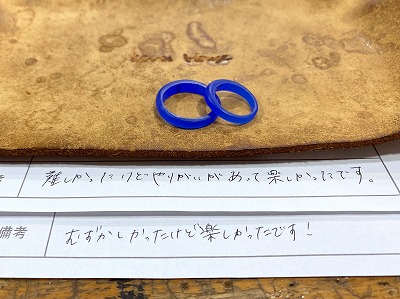 考 難しかったけどやりがいがあって楽しかったです。
備考 むずかしかったけど楽しかったです!